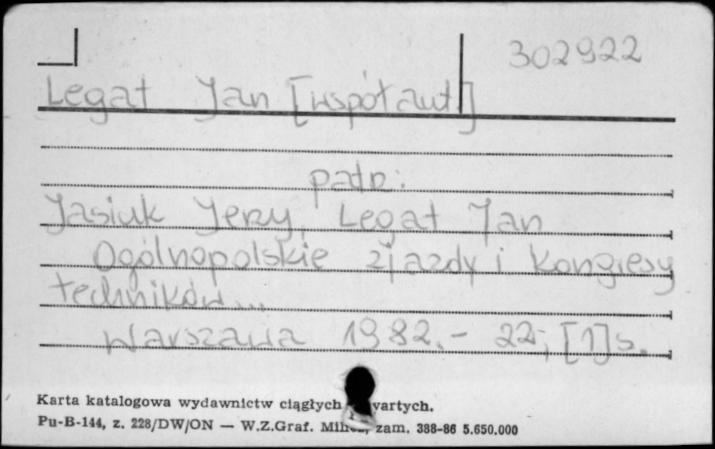 302922
Legat Jan [współaut]
patrz:
Jasiuk Jerzy, Legat Jan
Ogólnopolskie zjazdy i kongresy
techników...
Warszawa 1982.- 22, [1] s.
Karta katalogowa wydawnictw ciągłych
Pu-B-144, z. 228/DW/ON — W.Z.Graf. zam. 388-86 5.650.000